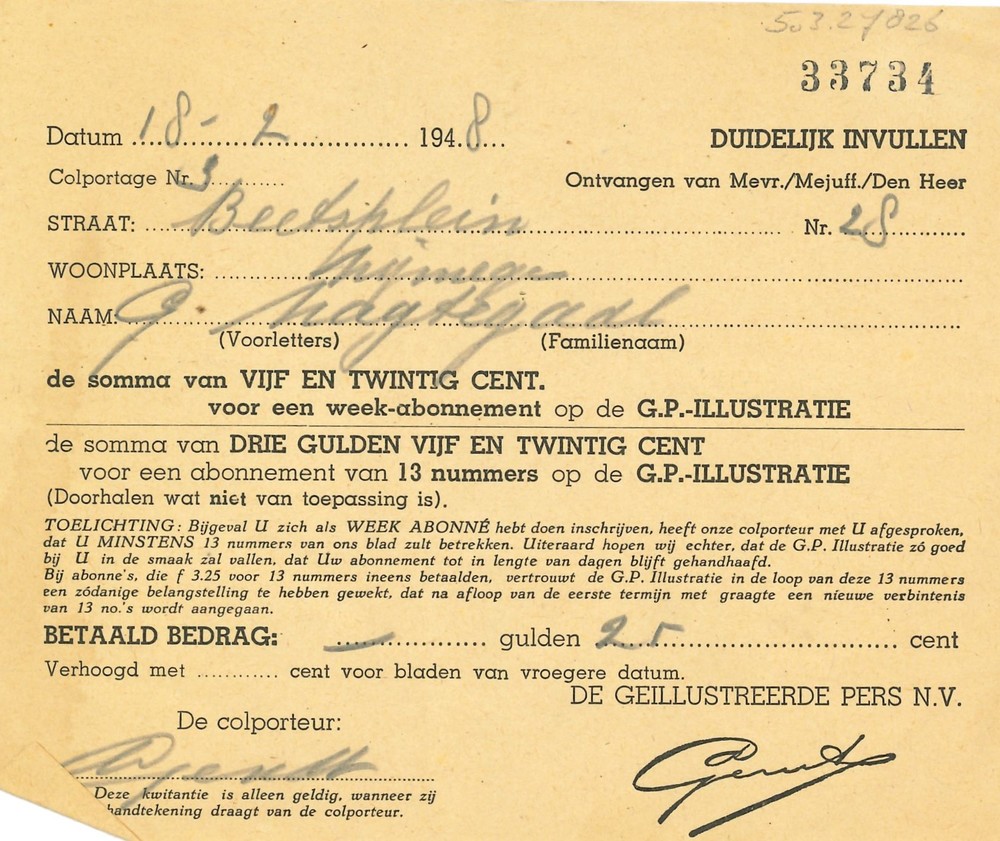 503.27826
33734
Datum 18-2 1948 DUIDELIJK INVULLEN
Colportage Nr. 3 Ontvangen van Mevr./Mejuff./Den Heer
STRAAT: Beetsplein Nr. 28
WOONPLAATS: Nijmegen
NAAM: G Nagtegaal
(Voorletters) (Familienaam)
de somma van VIJF EN TWINTIG CENT.
voor een week-abonnement op de G.P.-ILLUSTRATIE
de somma van DRIE GULDEN VIJF EN TWINTIG CENT
voor een abonnement van 13 nummers op de G.P.-ILLUSTRATIE
(Doorhalen wat niet van toepassing is).
TOELICHTING: Bijgeval U zich als WEEK ABONNÉ hebt doen inschrijven, heeft onze colporteur met U afgesproken,
dat U MINSTENS 13 nummers van ons blad zult betrekken. Uiteraard hopen wij echter, dat de G.P. Illustratie zó goed
bij U in de smaak zal vallen, dat Uw abonnement tot in lengte van dagen blijft gehandhaafd.
Bij abonne's, die f 3.25 voor 13 nummers ineens betaalden, vertrouwt de G.P. Illustratie in de loop van deze 13 nummers
een zódanige belangstelling te hebben gewekt, dat na afloop van de eerste termijn met graagte een nieuwe verbintenis
van 13 no.'s wordt aangegaan.
BETAALD BEDRAG: — gulden 25 cent
Verhoogd met ............ cent voor bladen van vroegere datum.
DE GEILLUSTREERDE PERS N.V.
De colporteur:
Deze kwitantie is alleen geldig, wanneer zij
handtekening draagt van de colporteur.